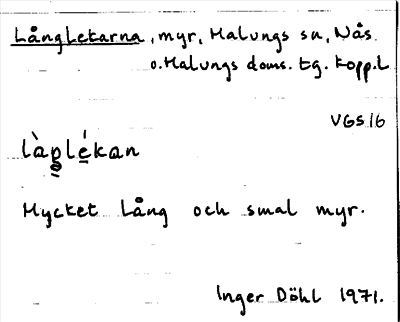 Långlekarna, myr, Malungs sn, Nås
o. Malungs doms. tg. Kopp.L
VGS 16
làplékan
Mycket lång och smal myr.
Inger Döhl 1971.